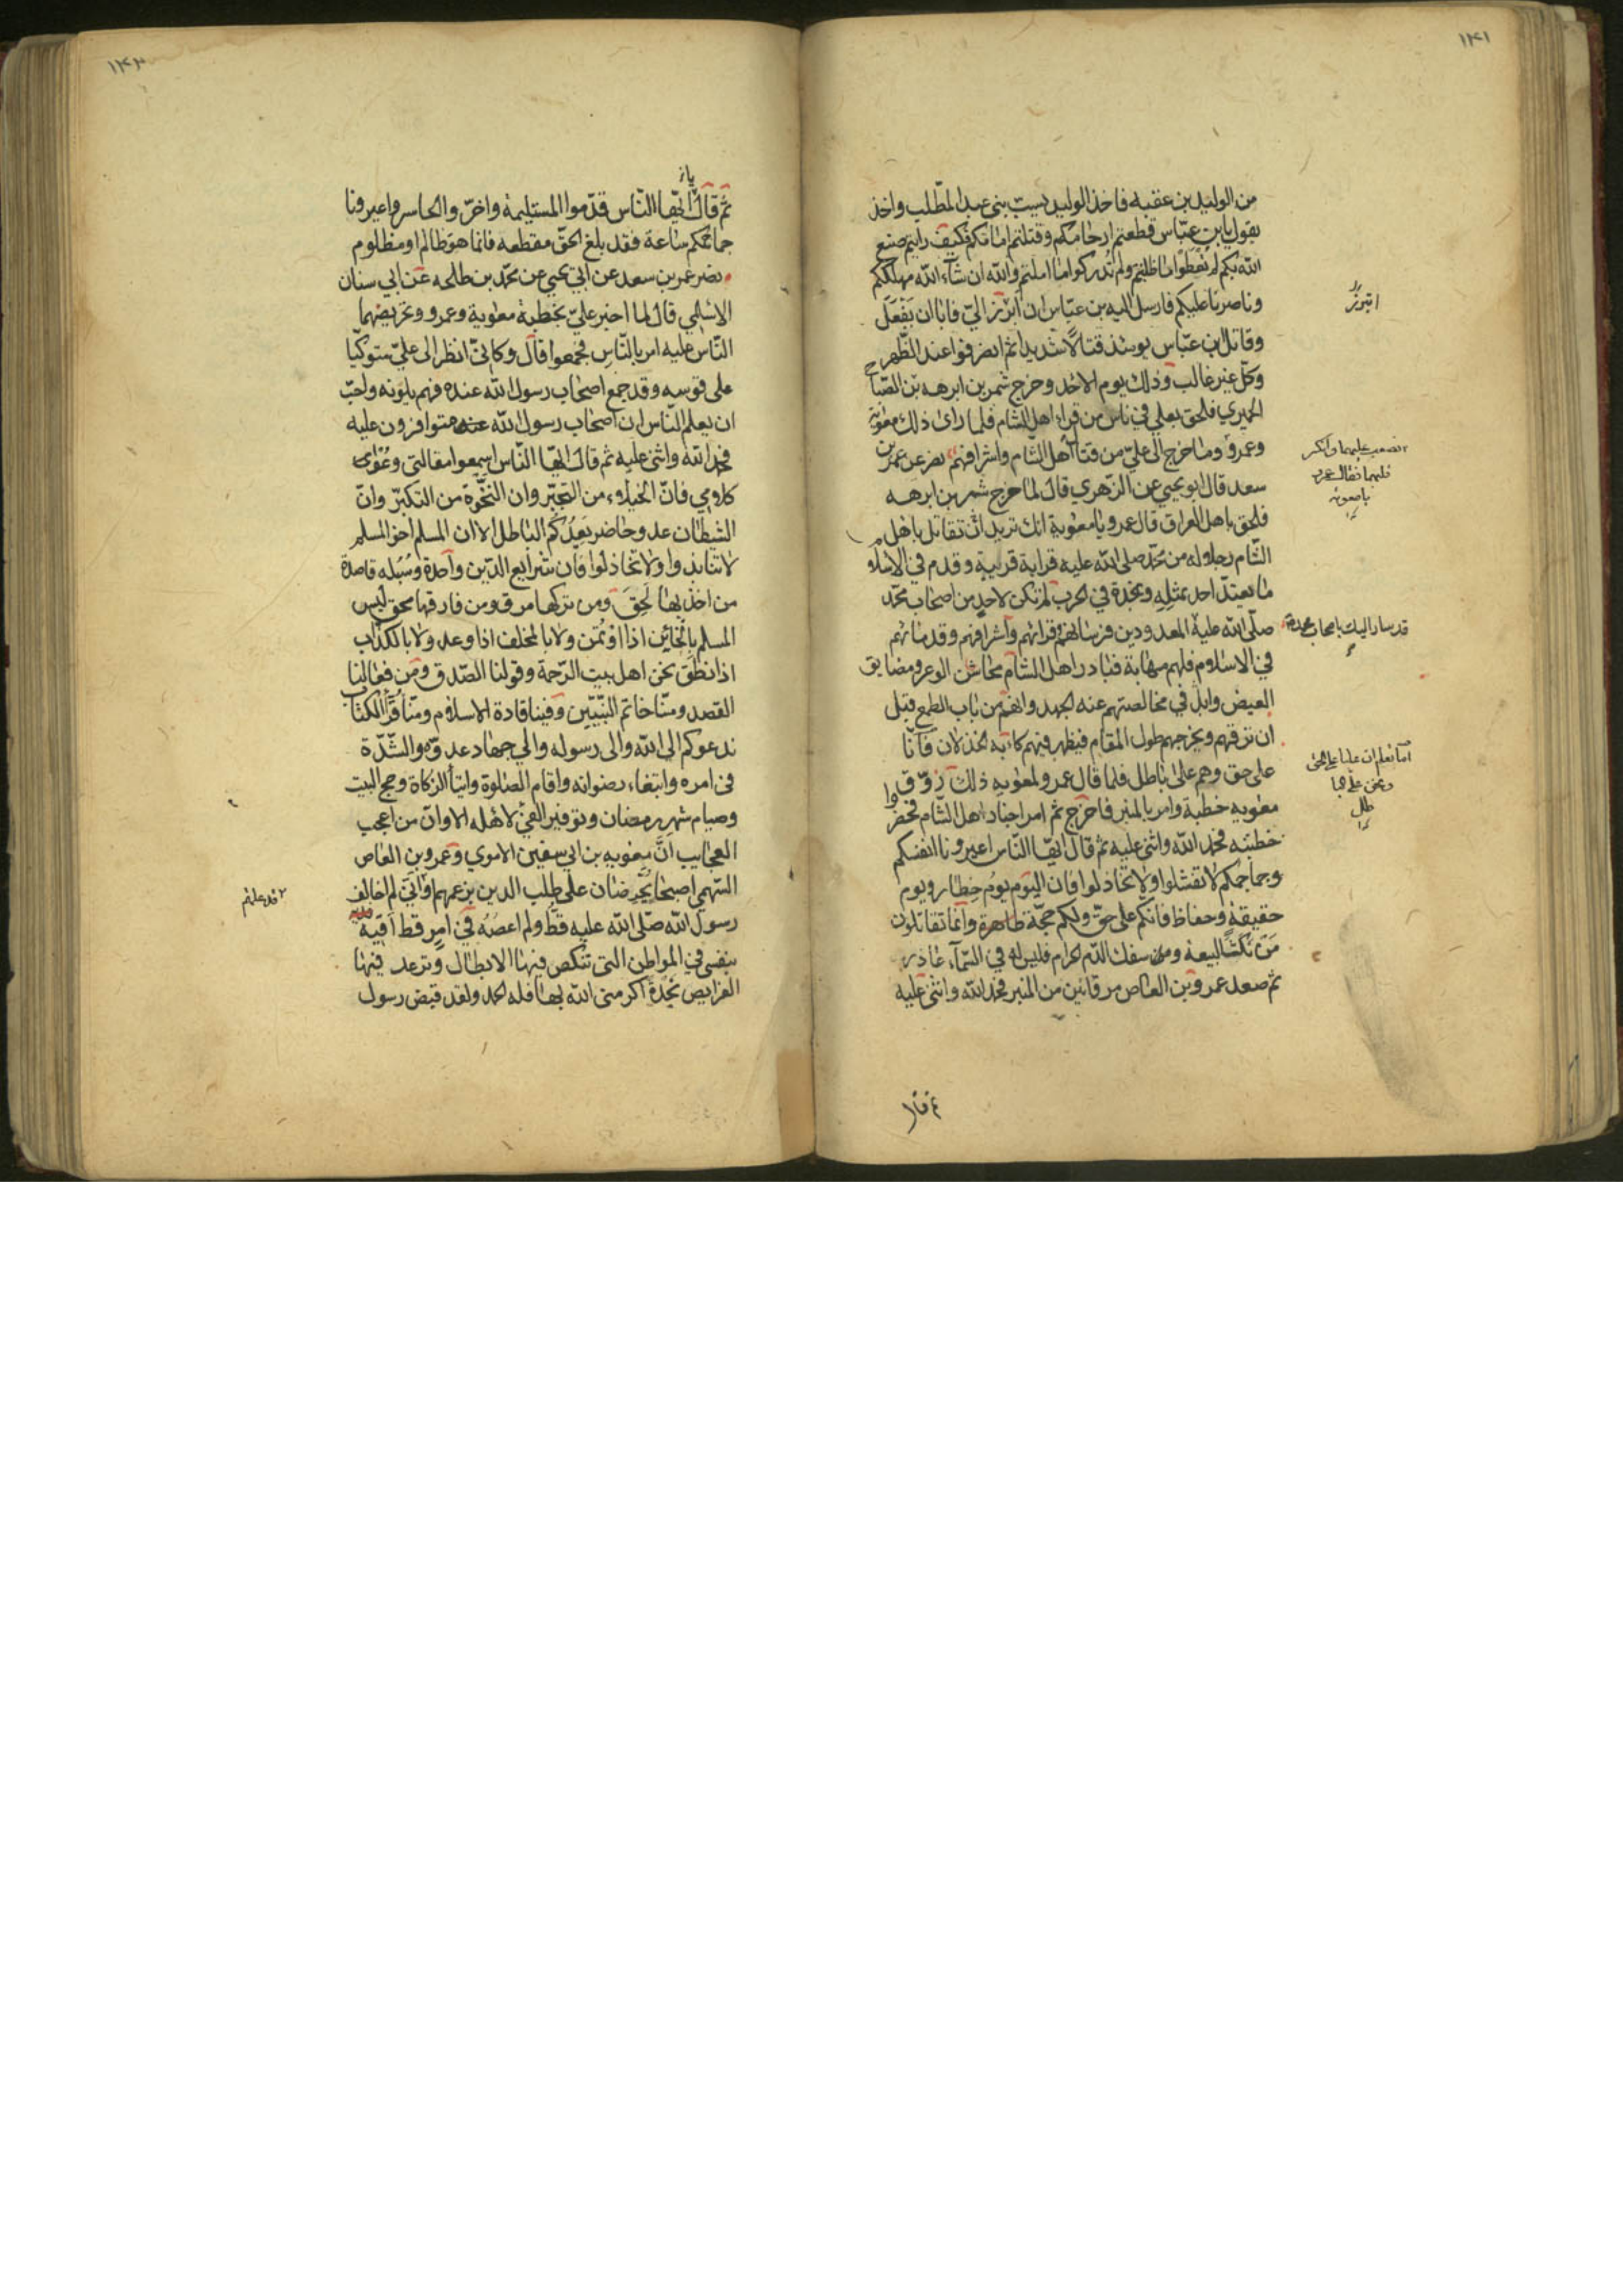 ١٤١
من الوليد بن عقبه فاخذ الوليد يسبّ بنى عبد المطّلب واخذ
يقول يابن عبّاس قطعتم ارحامكم وقتلتم امامكم فكيف رايتم صنع
الله بكم لم تُعْطَوا ما طلبتم ولم تدركوا ما املتم والله ان شآء الله مهلككم
وناصرنا عليكم فارسل اليه بن عبّاس ان ابرز اليّ فابا ان يَفْعَل
وقاتل ابن عبّاس يومئذ قتالًا شديدا ثم انصرفوا عند الظّهر
وكلّ غير غالب وذلك يوم الاحد وخرج شمر بن ابرهه بن الصّباح
الحميري فلحق بعلي في ناس من قراء اهل الشام فلما راى ذلك معوية
وعمرو وما خرج الى عليّ من قبائل اهل الشام واشرافهم نصر عن عمر بن
سعد قال ابو يحيي عن الزهري قال لما خرج شمر بن ابرهه
فلحق باهل العراق قال عمرو يا معوية انك تريد ان تقاتل باهل
الشام رجلا له من محمّد صلى الله عليه قرابة قريبة وقدم في الاسلام
ما يعتدّ احد بمثله ونجدة في الحرب لم تكن لاحد من اصحاب محمّد
صلّى الله عليه المعدودين فرسانهم وقرائهم واشرافهم وقدمائهم
في الاسلام فلهم مهابة فبادر اهل الشام مخاشن الوعر ومضايق
الغيض واحمل في مخالصتهم عنه الجهد واتهم من باب الطمع قبل
ان ترفههم ويخرجهم طول المقام فيظهر فيهم كآبة الخذلان فانّا
على حق وهم على باطل فلما قال عمرو لمعويه ذلك زوّقوا
معويه خطبة وامر بالمنبر فاخرج ثم امر اجناد اهل الشّام فحضر
خطبته فحمد الله واثنى عليه ثم قال ايّها النّاس اعيرونا انفسكم
وجماجمكم لا تفشلوا ولا تخاذلوا فان اليوم يوم خِطار ويوم
حقيقة وحفاظ فانكم على حقّ ولكم حجّة ظاهرة وانما تقاتلون
مَن نكث البيعة ومن سفك الدّم الحرام فليس له في السّمآء عاذر
ثم صعد عمرو بن العاص مرقاتين من المنبر فحمد الله واثنى عليه
ابرز
يا معوية
قد سار اليك باصحاب محمد
اما تعلم ان عليا على الحق
١٤٢
ثم قال ايّها النّاس قدّموا المستليمة واخرّوا الحاسر واعيرونا
جماجمكم ساعة فقد بلغ الحقّ مقطعه فانما هو ظالم او مظلوم
نصر عمر بن سعد عن ابي يحيي عن محمّد بن طلحه عن ابي سنان
الاسلمي قال لما اخبر عليّ بخطبة معوية وعمرو وتحريضهما
النّاس عليه امر بالنّاس فجمعوا قال وكانّى انظر الى عليّ متوكّيا
على قوسه وقد جمع اصحاب رسول الله عنده فهم يلونه واحبّ
ان يعلم النّاس ان اصحاب رسول الله متوافرون عليه
فحمد الله واثنى عليه ثم قال ايّها النّاس اسمعوا مقالتى وعُوا
كلامي فانّ الخيلاء من التجبّر وان النخوة من التكبّر وانّ
الشيطان عدو حاضر يَعِدُكُم الباطل الا ان المسلم اخو المسلم
لا تنابذوا ولا تخاذلوا فان شرايع الدّين واحدة وسُبُله قاصدة
من اخذ بها لَحِقَ ومن تركها مرق ومن فارقها محق ليس
المسلم بالخائن اذا اؤتمن ولا بالمخلف اذا وعد ولا بالكذّاب
اذا نطق نحن اهل بيت الرّحمة وقولنا الصّدق ومن فعالنا
القصد ومنّا خاتم النّبيّين وفينا قادة الاسلام ومنّا قُرّاء الكتاب
ندعوكم الى الله والى رسوله والى جهاد عدوّه والشّدّة
فى امره وابتغاء رضوانه واقام الصّلوة وايتاء الزكاة وحج البيت
وصيام شهر رمضان وتوفير الفئ لاهله الا وانّ من اعجب
العجايب انّ معويه بن ابي سفين الاموي وعمرو بن العاص
السّهمي اصبحا يُحَرِّضان على طلب الدين بزعمهم واني لم اخالف
رسول الله صلّى الله عليه قطّ ولم اعصه في امر قط اقيه
بنفسى في المواطن التى تنكص فيها الابطال وترعد فيها
الفرايص نجدة اكرمنى الله بها فله الحمد ولقد قبض رسول
قد علمتم